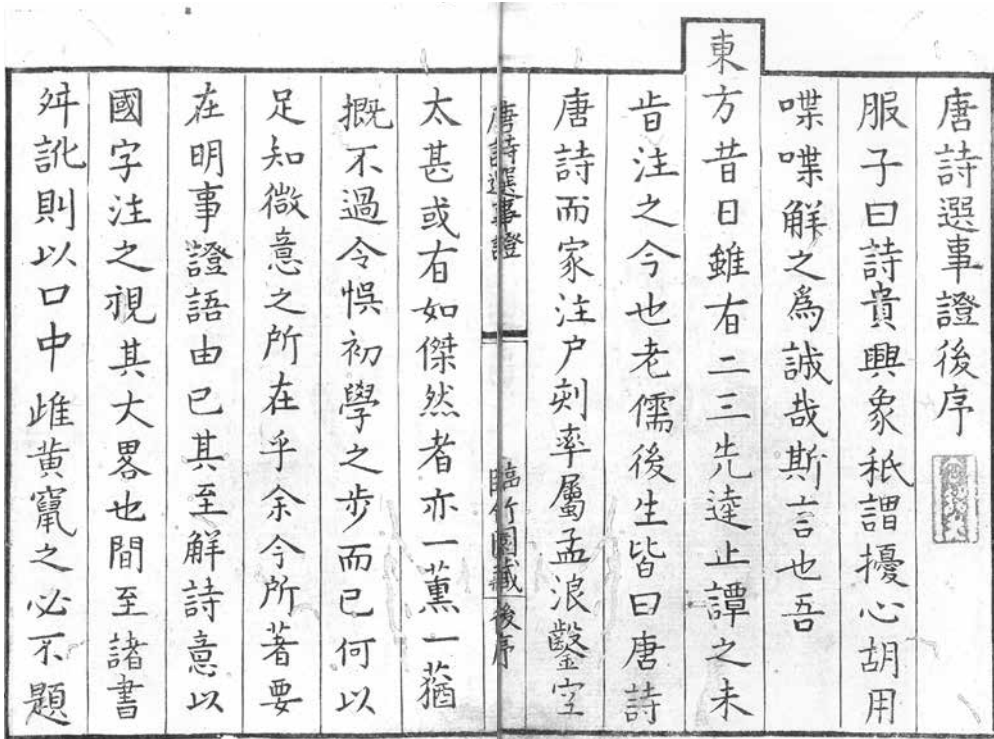 唐詩選事證後序
服子曰詩貴興象秖謂擾心胡用
喋喋解之爲誠哉斯言也吾
東方昔日雖有二三先達止譚之未
肯注之今也老儒後生皆曰唐詩
唐詩而家注户刻率屬孟浪鑿空
唐詩選事證
臨竹園藏
後序
太甚或有如傑然者亦一薰一蕕
概不過令悞初學之步而已何以
足知微意之所在乎余今所著要
在明事證語由已其至解詩意以
國字注之視其大畧也間至諸書
舛訛則以口中雌黄竄之必不題